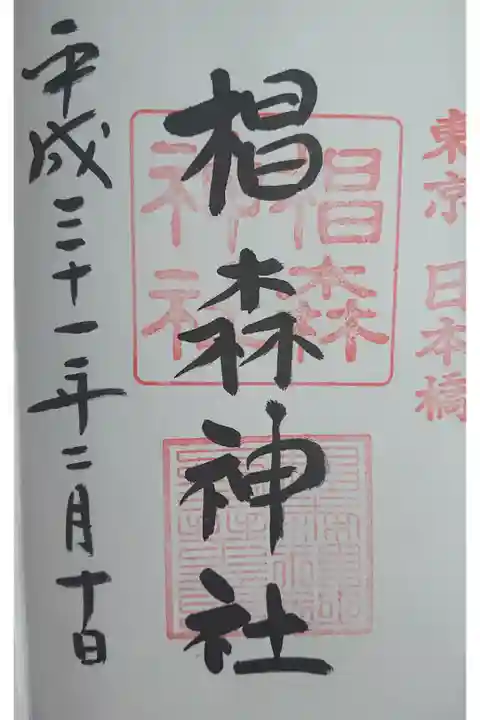 東京 日本橋
椙森神社
椙森
神社
平成三十一年二月十日